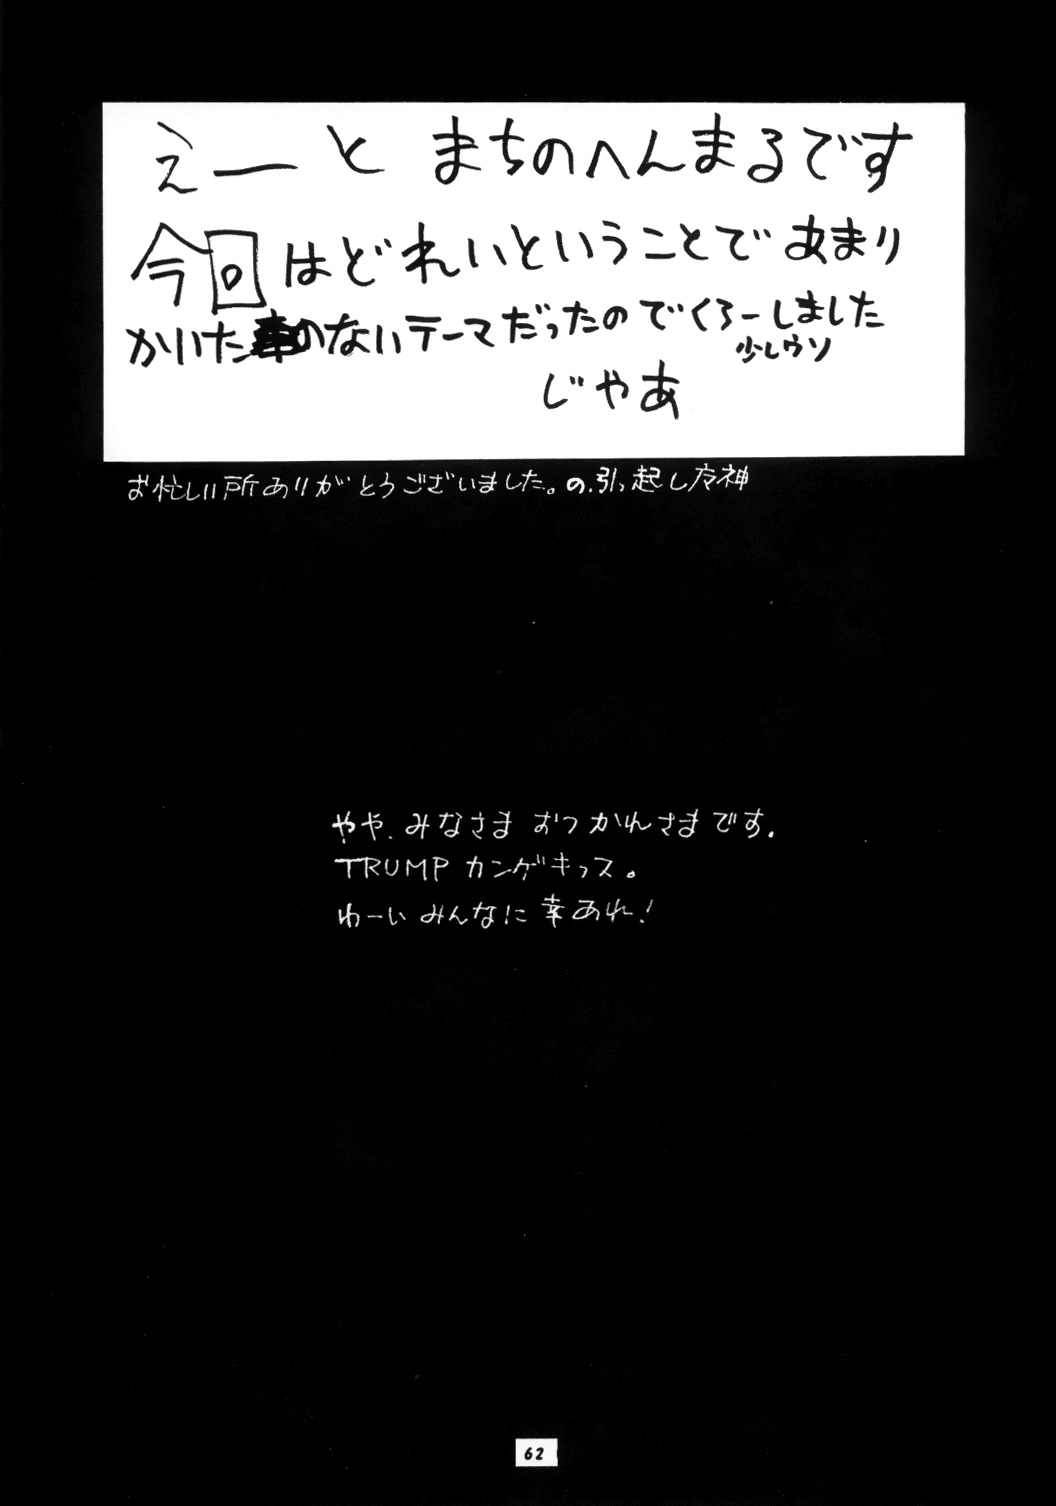 えーと まちのへんまるです
今回はどれいということで あまり
かいた のないテーマだったのでくろーしました
少しウソ
じゃあ
お忙しい所ありがとうございました。の、引っ越し
やや、みなさま おつかれさまです。
TRUMP カンゲキっス。
わーい みんなに 幸あれ!
62